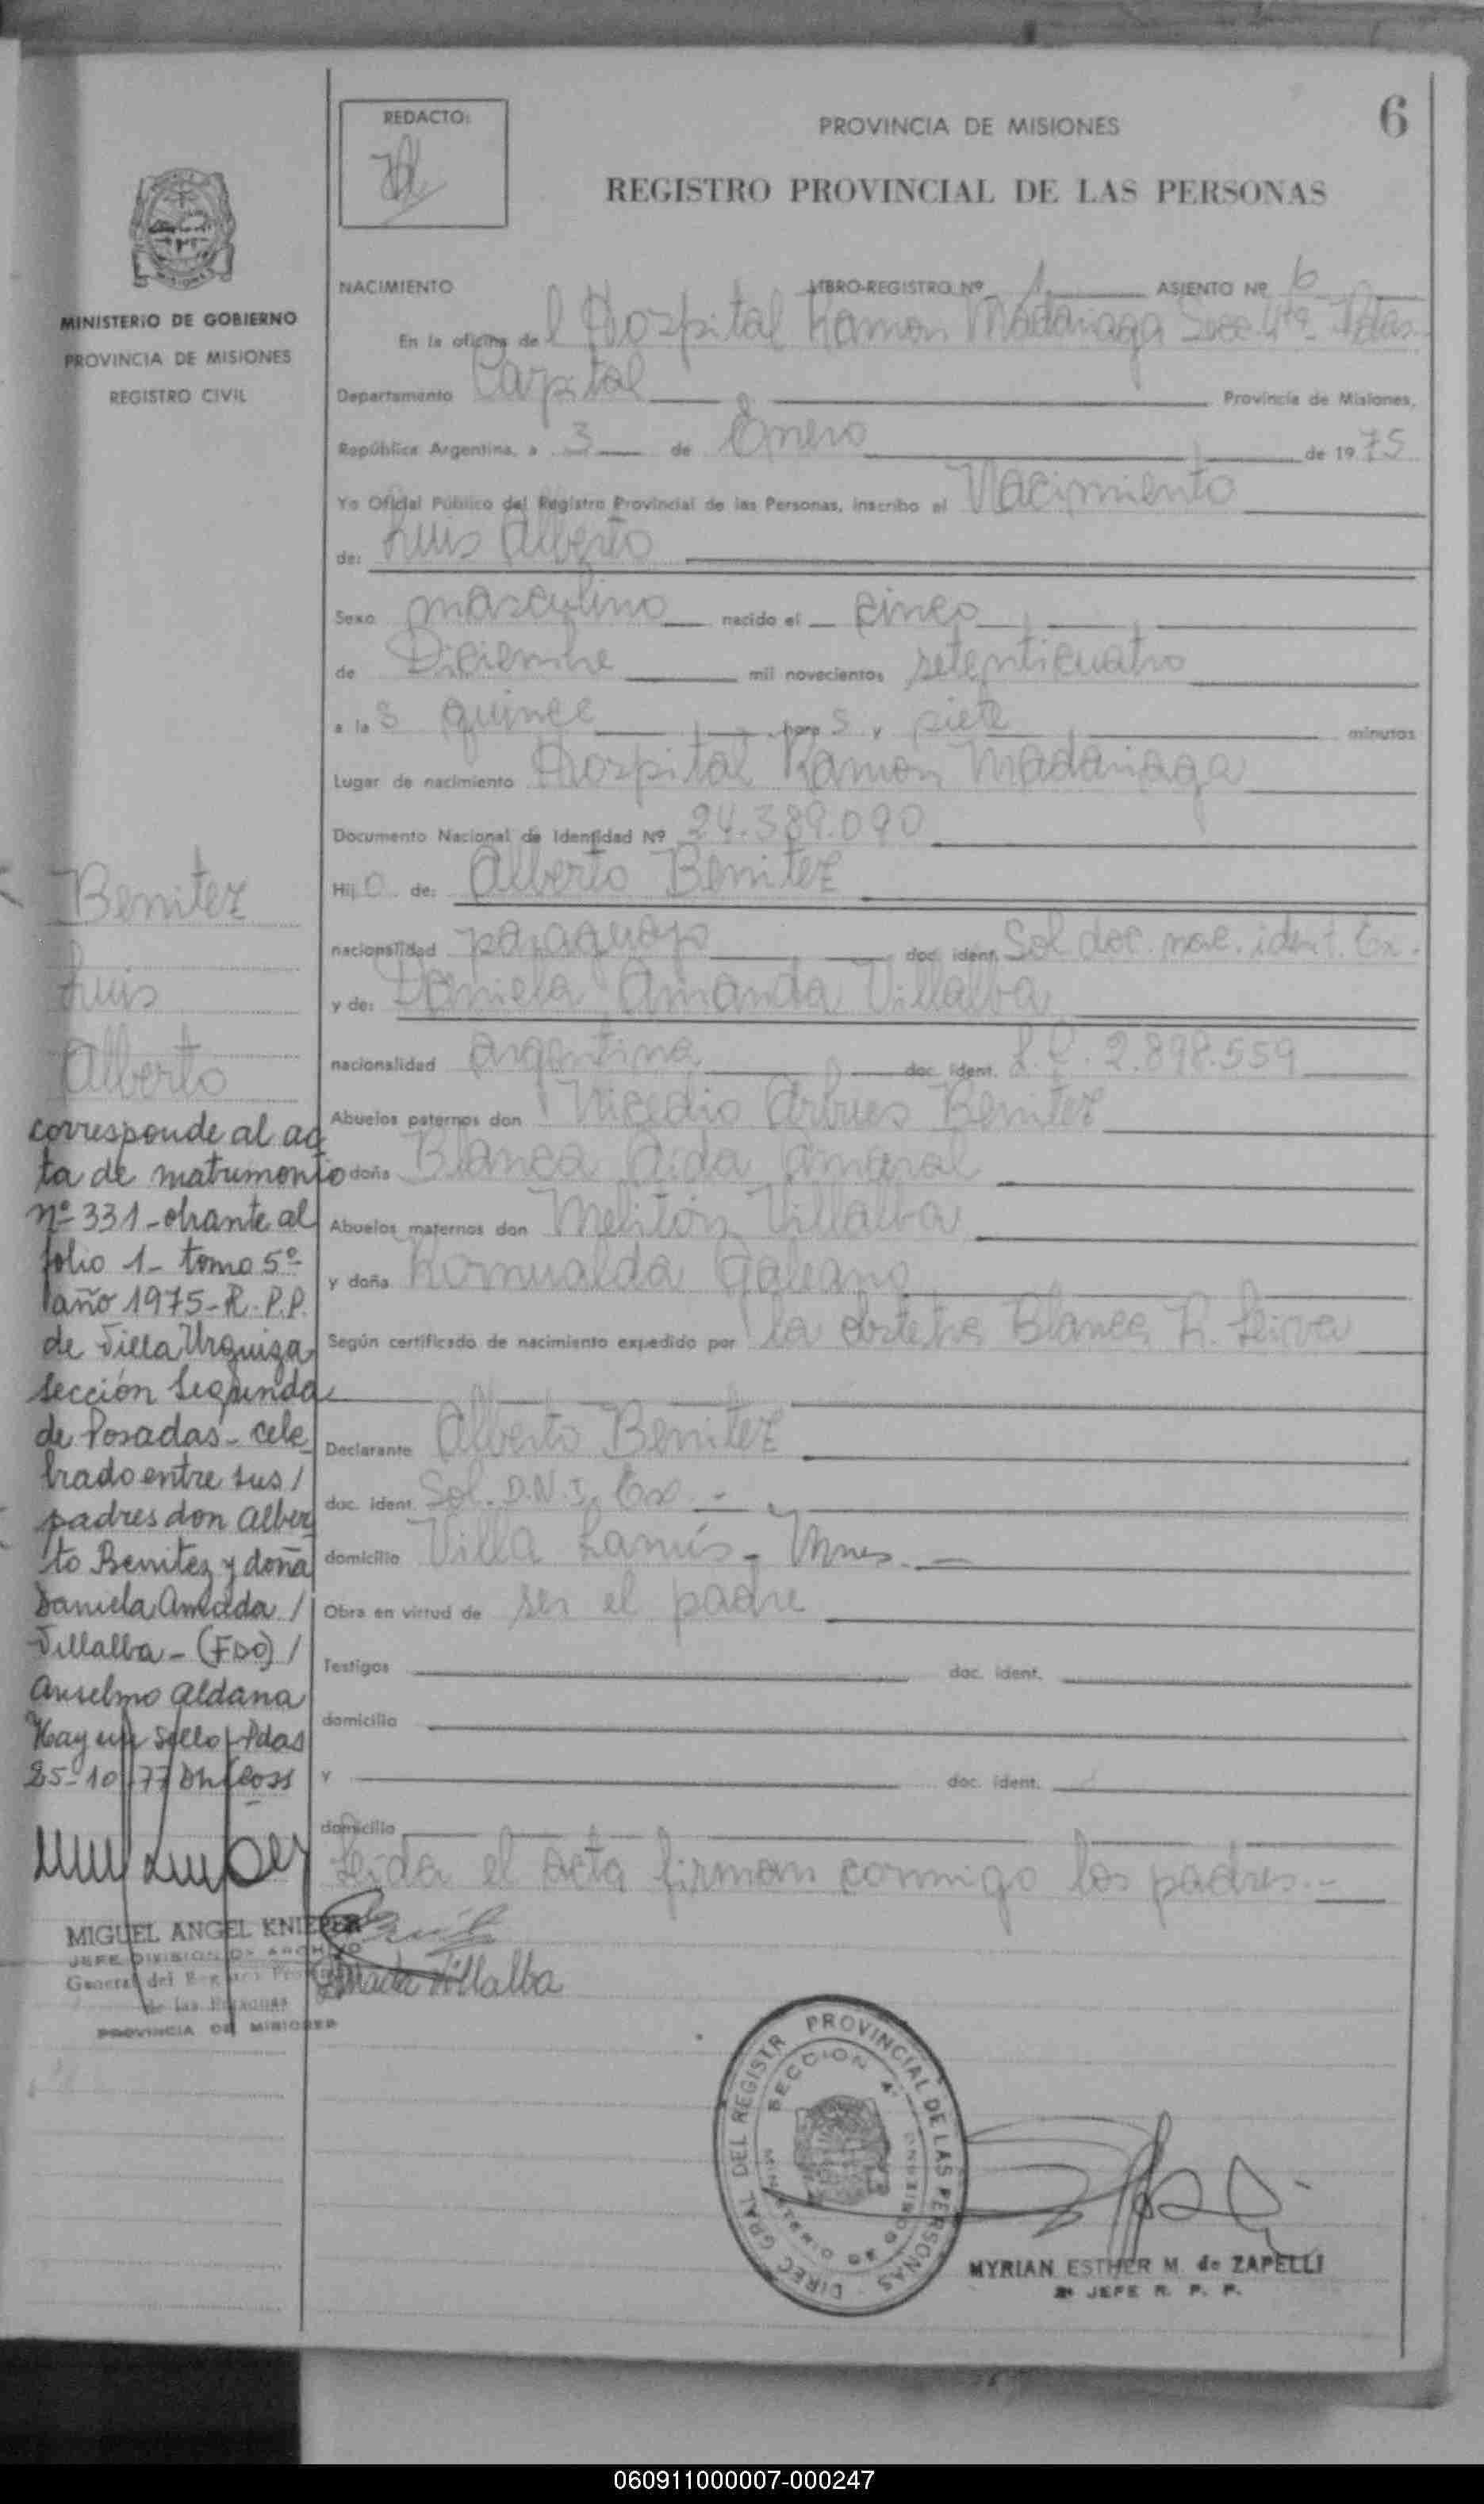 6
REDACTO:
PROVINCIA DE MISIONES
REGISTRO PROVINCIAL DE LAS PERSONAS
MINISTERIO DE GOBIERNO
PROVINCIA DE MISIONES
REGISTRO CIVIL
NACIMIENTO LIBRO-REGISTRO Nº 1 ASIENTO Nº 6
En la oficina del Hospital Ramon Madariaga Secc. 4ta Pdas.
Departamento Capital Provincia de Misiones,
República Argentina, a 3 de Enero de 1975
Yo Oficial Público del Registro Provincial de las Personas, inscribo el Nacimiento
de: Luis Alberto
Sexo masculino nacido el cinco
de Diciembre mil novecientos setenticuatro
a las quince horas y siete minutos
Lugar de nacimiento Hospital Ramon Madariaga
Documento Nacional de Identidad Nº 24.389.090
Hijo de: Alberto Benitez
nacionalidad paraguayo doc. ident. Sol doc. nac. ident. Ex.
y de: Daniela Amanda Villalba
nacionalidad argentina doc. ident. L.C. 2.898.559
Abuelos paternos don Nicedio Arbues Benitez
doña Blanca Aida Amaral
Abuelos maternos don Melitón Villalba
y doña Romualda Galeano
Según certificado de nacimiento expedido por la obstetra Blanca R. Leiva
Declarante Alberto Benitez
doc. ident. Sol. D.N.I. Ex. -
domicilio Villa Lanús - Mnes. -
Obra en virtud de ser el padre
Testigos doc. ident.
domicilio
y doc. ident.
domicilio
Leida el acta firman conmigo los padres.-
Amada Villalba
Benitez
Luis
Alberto
corresponde al ac
ta de matrimonio
nº 331 - obrante al
folio 1 - tomo 5º
año 1975 - R.P.P.
de Villa Urquiza
sección Segunda
de Posadas - cele
brado entre sus /
padres don Alber
to Benitez y doña
Daniela Amada /
Villalba - (FDO) /
Anselmo Aldana
Hay un sello - Pdas
25-10-77
MIGUEL ANGEL KNIEPER
JEFE DIVISION DE ARCHIVO
General del Registro Provincial
de las Personas
PROVINCIA DE MISIONES
DIREC GRAL DEL REGISTR PROVINCIAL DE LAS PERSONAS
SECCION 4ª
MINISTERIO DE GOBIERNO
MYRIAN ESTHER M. de ZAPELLI
2º JEFE R. P. P.
060911000007-000247